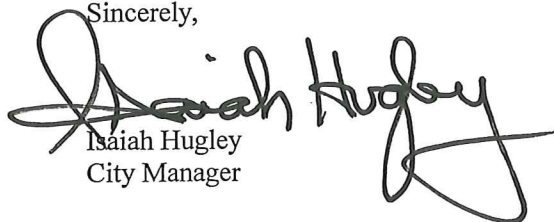 Sincerely,
Isaiah Hugley
Isaiah Hugley
City Manager